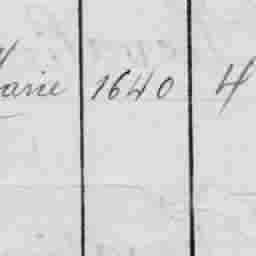 Marie 1640 H